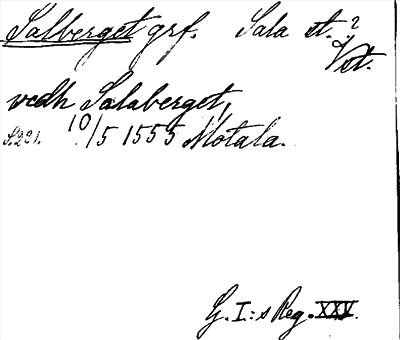 Salberget grf. Sala st.?
Vst.
vedh Salaberget,
S.221. 10/5 1555 Motala.
G. I:s Reg. XXV.